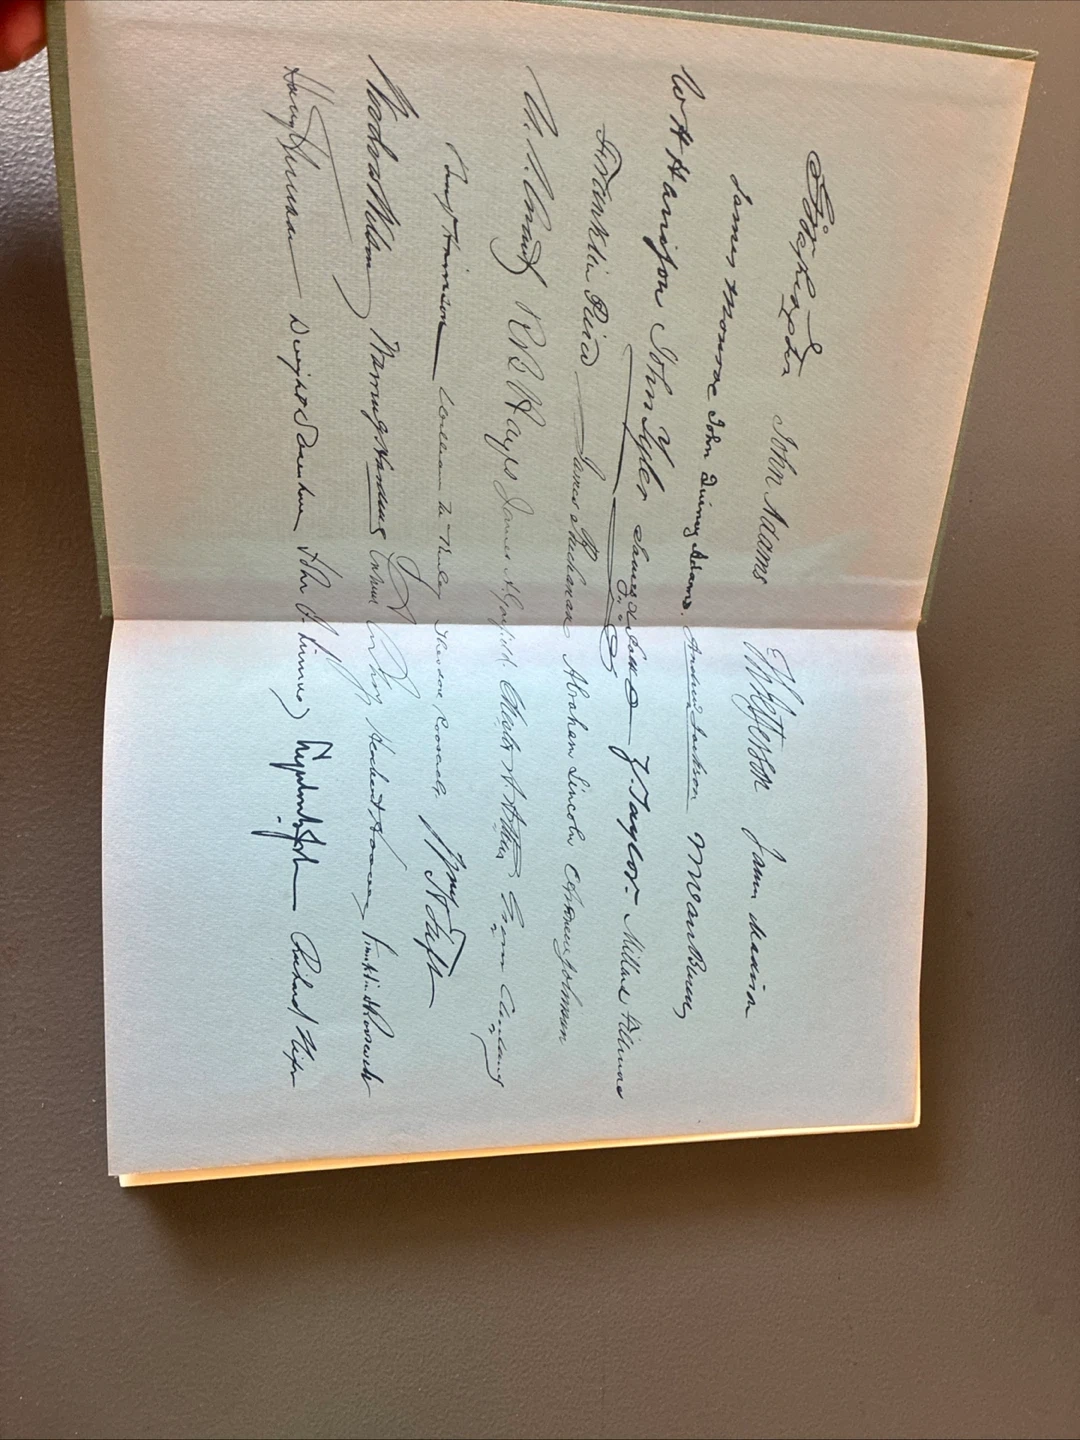 G Washington John Adams Th Jefferson James Madison
James Monroe John Quincy Adams. Andrew Jackson M Van Buren
W H Harrison John Tyler James K Polk Z. Taylor. Millard Fillmore
Franklin Pierce James Buchanan Abraham Lincoln Andrew Johnson
U. S. Grant R B Hayes James A Garfield Chester A Arthur Grover Cleveland
Benj Harrison William McKinley Theodore Roosevelt Wm H Taft
Woodrow Wilson Warren G Harding Calvin Coolidge Herbert Hoover Franklin D Roosevelt
Harry S Truman Dwight D Eisenhower John F. Kennedy Lyndon B. Johnson Richard Nixon